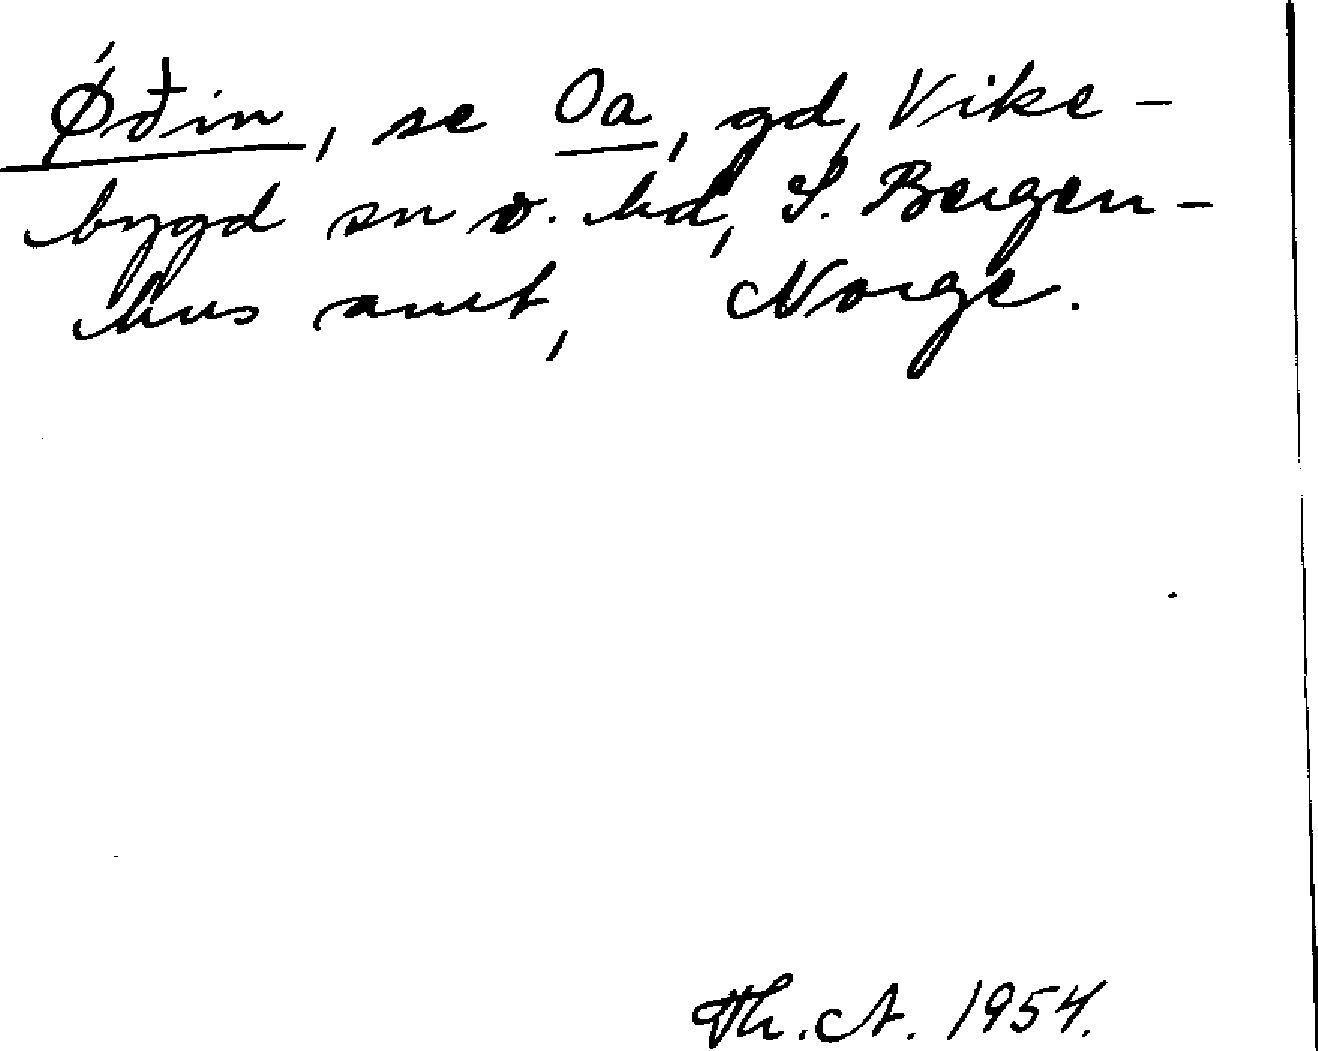 Ǿðin, se Oa, gd, Vike-
bygd sn o. hd, S. Bergen-
hus amt, Norge.
Th. A. 1954.